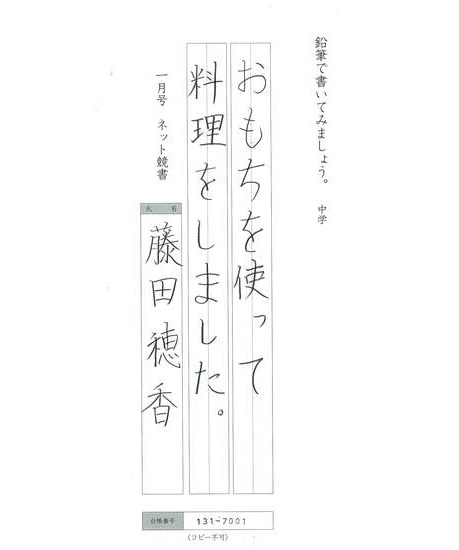 鉛筆で書いてみましょう。 中学
おもちを使って
料理をしました。
一月号 ネット競書
氏名
藤田穂香
台帳番号 131-7001
〈コピー不可〉